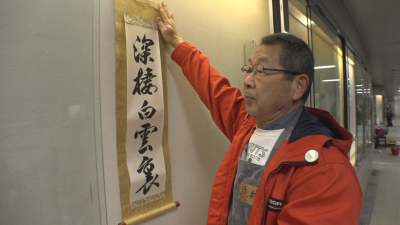 深棲白雲裏